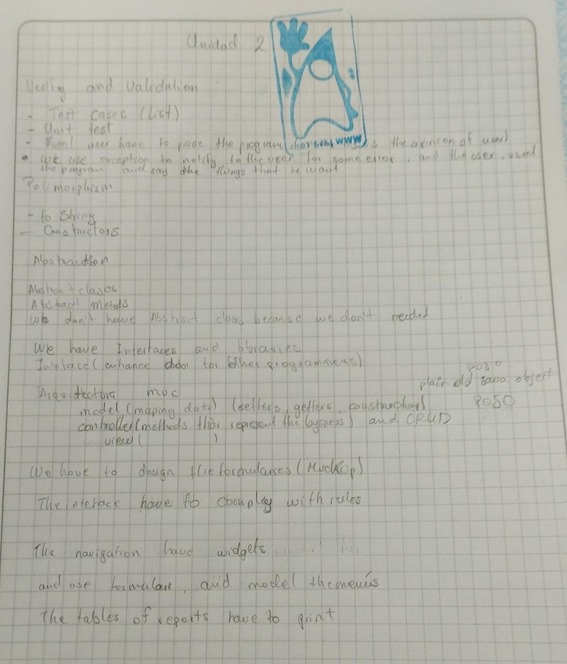 Unidad 2
Verify and Validation
- Test cases (List)
- Unit test
- Final user have to prove the program (horoval www) is the opinion of user)
• we use exception to notify to the user for some error, and the user, used
the program and say the things that he want
Polimorphism
- to String
- Constructors
Abstraction
Abstract clases
Abstract metods
We don't have Abstract class because we don't needed
We have Interfaces and libraries
Interface (enhance door for other programmers)
pojo
plain old java object
POJO
mvc
model (maping data) (setters, getters, constructor)
controller (methods that represent the) and CRUD
view ( )
We have to design the formulares (Mockup)
The interface have to comply with rules
The navigation have widgets
and use formulare, and model the menús
The tables of reports have to print